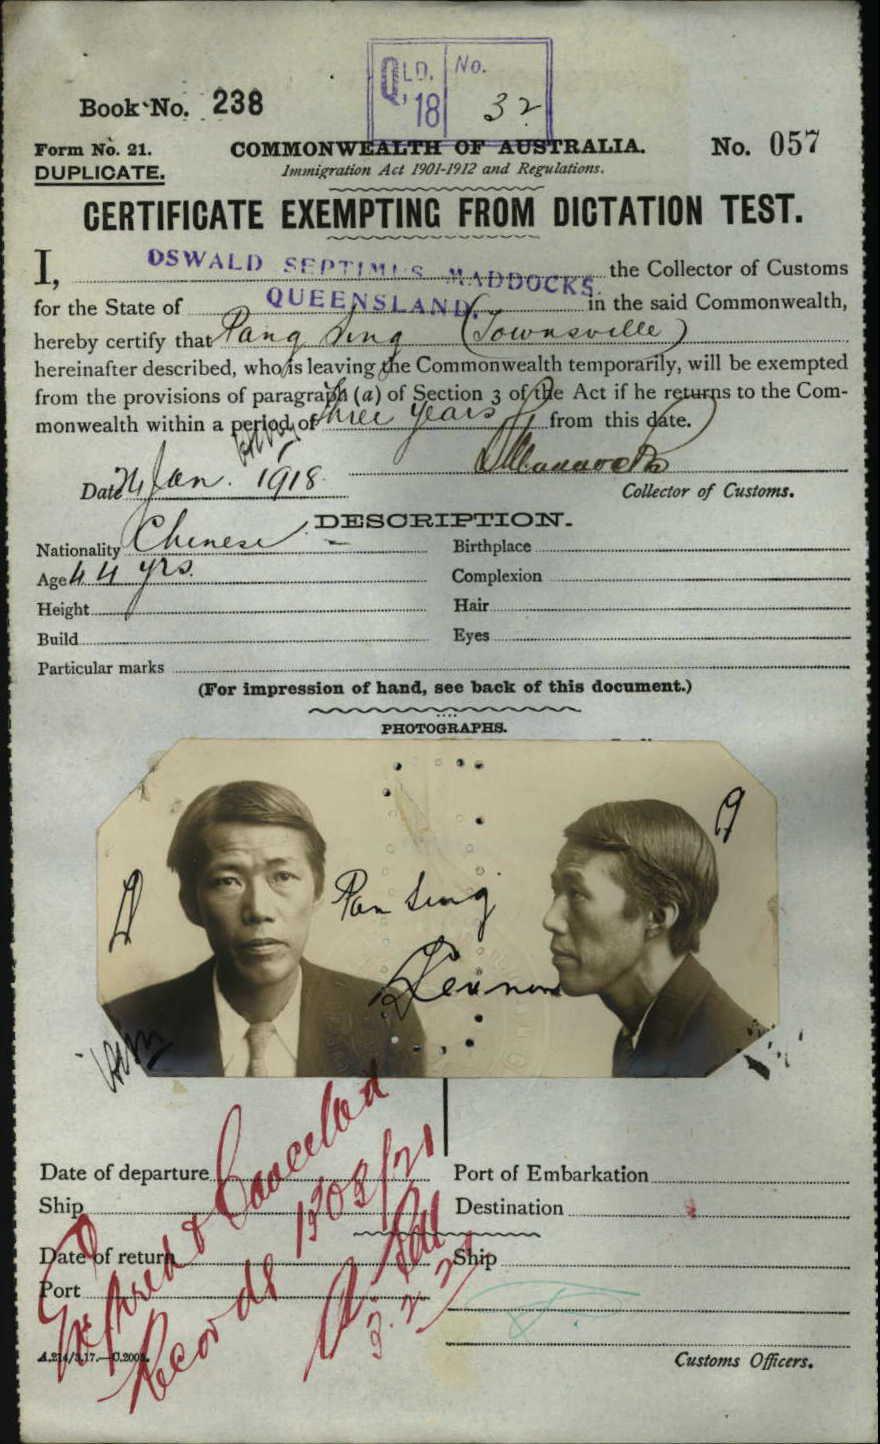 QLD. No.
Q. 18 32
Book No. 238
Form No. 21. COMMONWEALTH OF AUSTRALIA. No. 057
DUPLICATE. Immigration Act 1901-1912 and Regulations.
CERTIFICATE EXEMPTING FROM DICTATION TEST.
I, OSWALD SEPTIMUS MADDOCKS. the Collector of Customs
for the State of QUEENSLAND. in the said Commonwealth,
hereby certify that Pang Sing (Townsville)
hereinafter described, who is leaving the Commonwealth temporarily, will be exempted
from the provisions of paragraph (a) of Section 3 of the Act if he returns to the Com-
monwealth within a period of three years from this date.
Date Jan. 1918
Collector of Customs.
DESCRIPTION.
Nationality Chinese Birthplace
Age 44 yrs. Complexion
Height Hair
Build Eyes
Particular marks
(For impression of hand, see back of this document.)
PHOTOGRAPHS.
Pan Sing
Date of departure Port of Embarkation
Ship Destination
Date of return Ship
Port
Expired & Cancelled
Records 1303/21
3.2.21
Customs Officers.